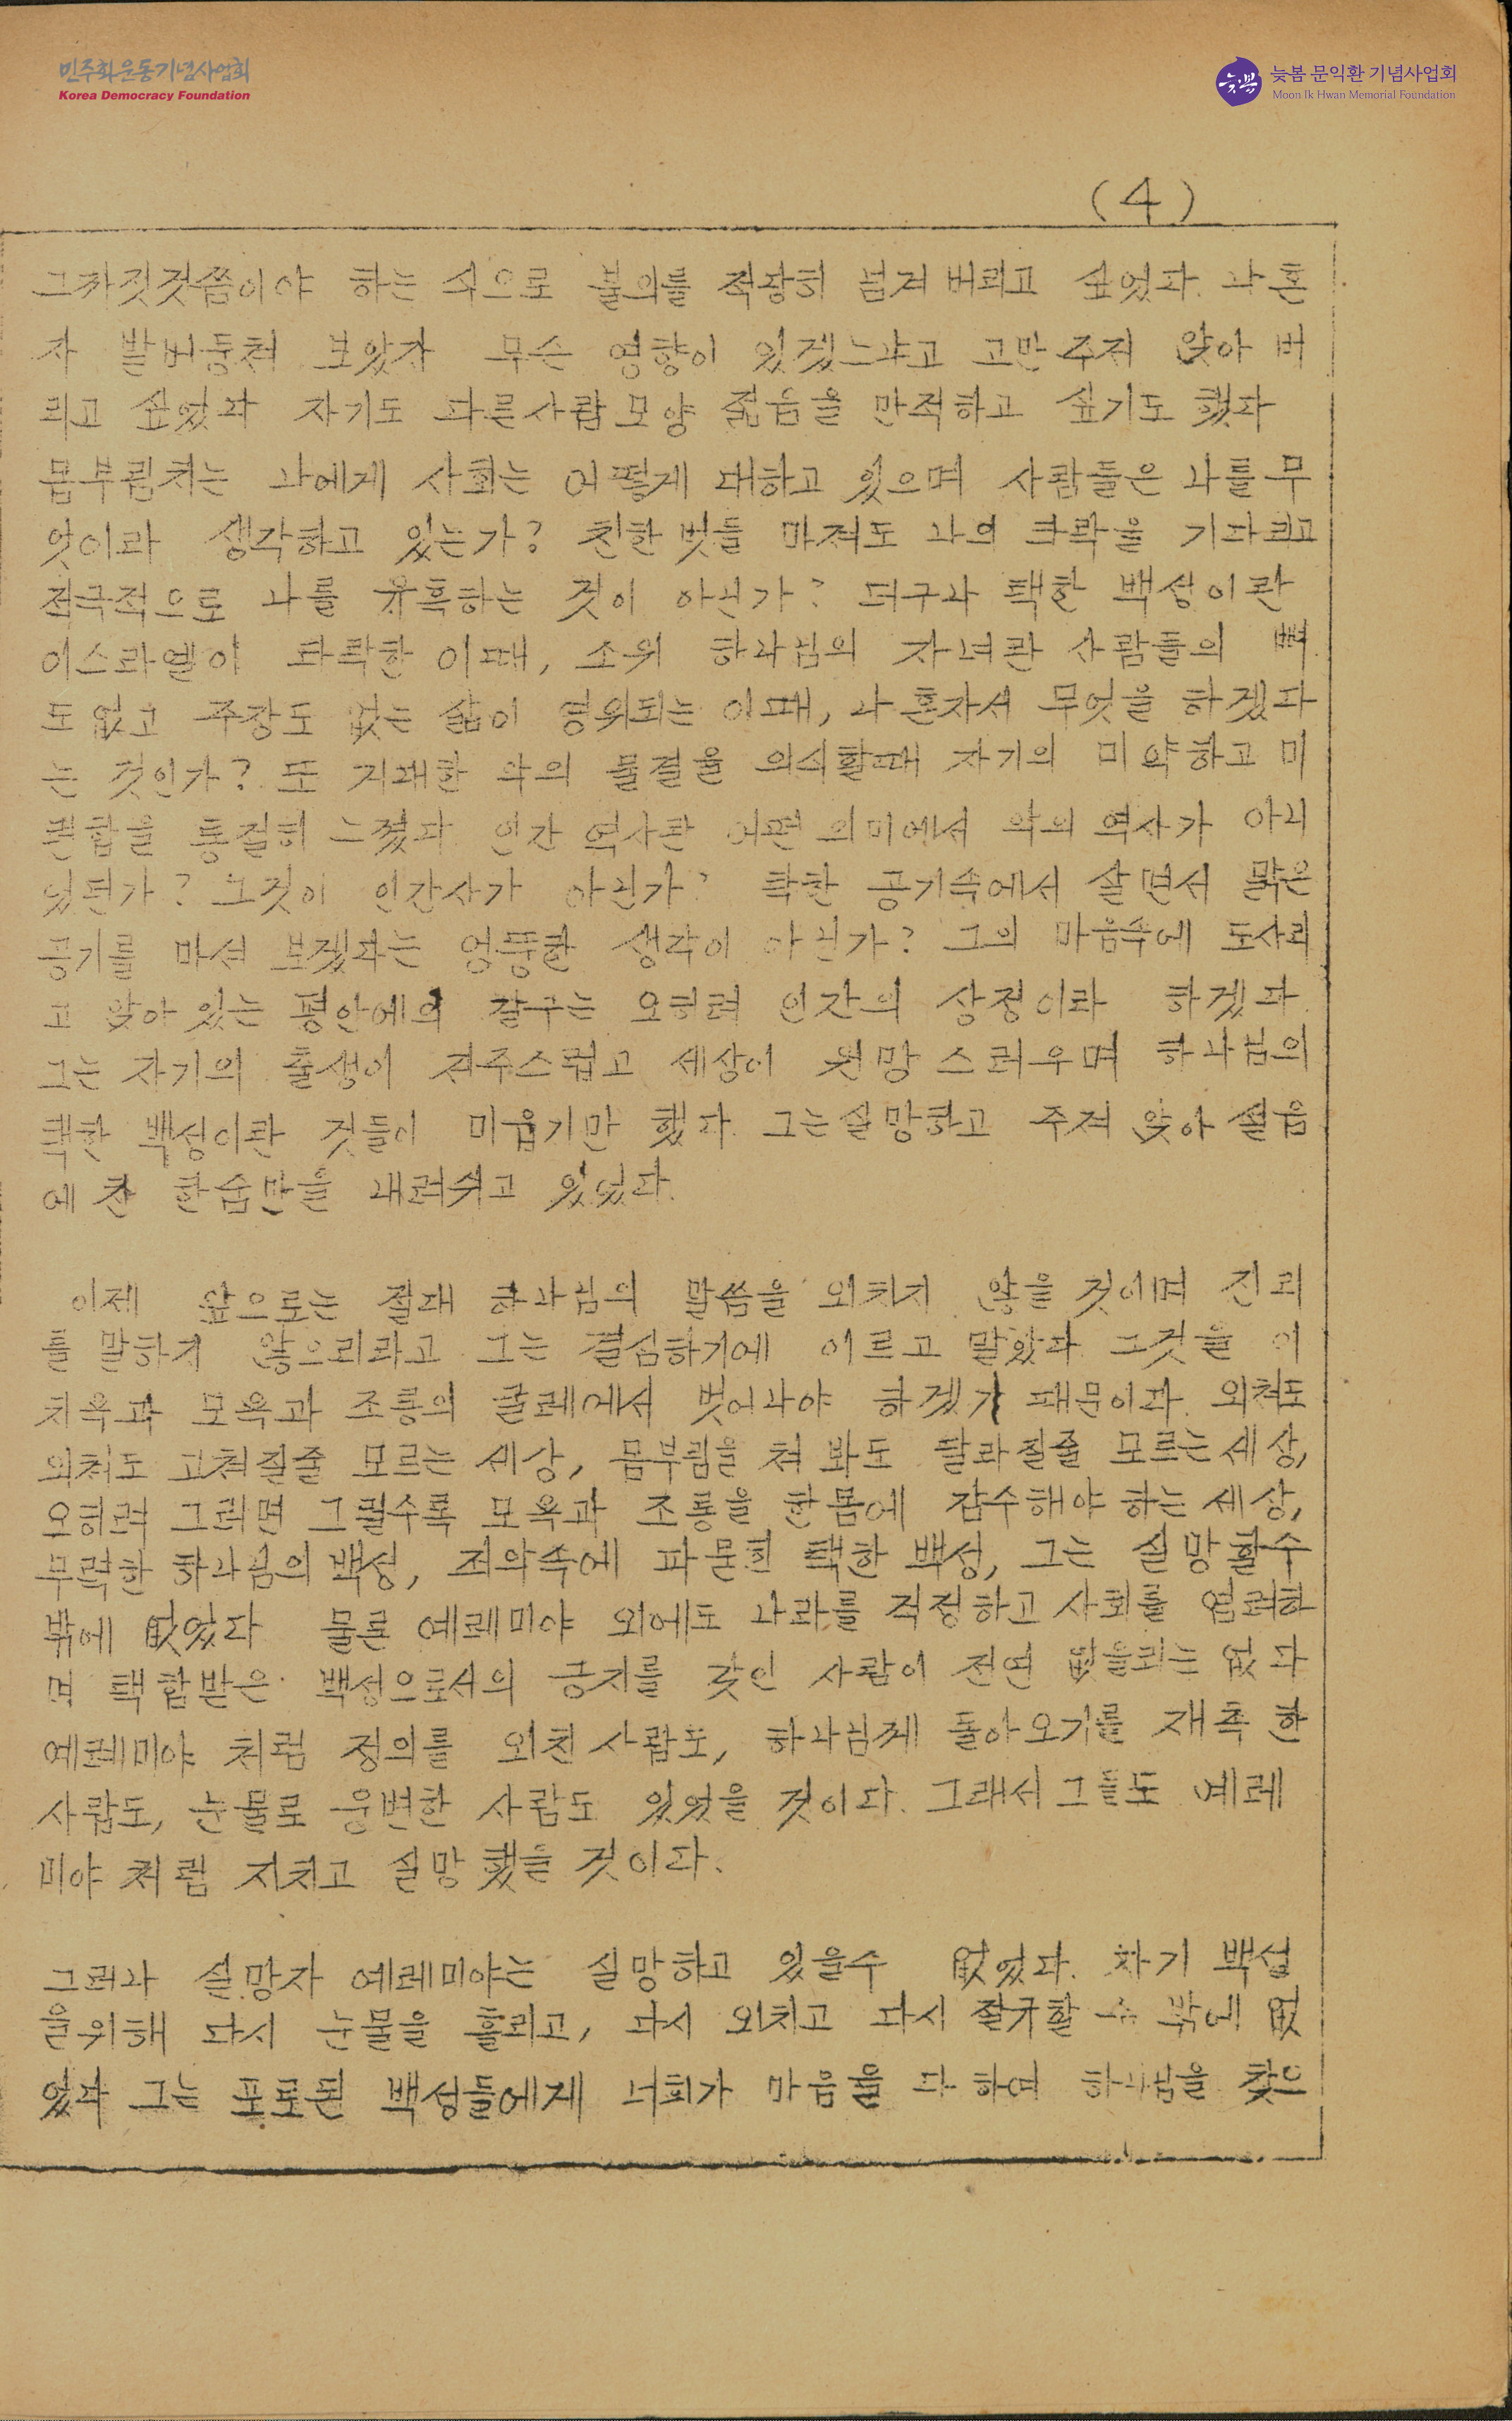 민주화운동기념사업회
Korea Democracy Foundation
늦봄
늦봄 문익환 기념사업회
Moon Ik Hwan Memorial Foundation
(4)
그까짓것쯤이야 하는 식으로 불의를 적당히 넘겨 버리고 싶었다. 나 혼
자 발버둥쳐 보았자 무슨 영향이 있겠느냐고 고만 주저 앉아 버
리고 싶었다 자기도 다른사람모양 젊음을 만적하고 싶기도 했다
몸부림치는 나에게 사회는 어떻게 대하고 있으며 사람들은 나를 무
엇이라 생각하고 있는가? 친한 벗들 마져도 나의 타락을 기다리고
적극적으로 나를 유혹하는 것이 아닌가? 더구나 택한 백성이란
이스라엘이 타락한 이때, 소위 하나님의 자녀란 사람들의 뼈
도 없고 주장도 없는 삶이 영위되는 이때, 나 혼자서 무엇을 하겠다
는 것인가? 또 거대한 악의 물결을 의식할때 자기의 미약하고 미
련함을 통절히 느꼈다 인간 역사란 어떤 의미에서 악의 역사가 아니
었던가? 그것이 인간사가 아닌가? 탁한 공기속에서 살면서 맑은
공기를 마셔 보겠다는 엉뚱한 생각이 아닌가? 그의 마음속에 도사리
고 앉아 있는 평안에의 갈구는 오히려 인간의 상정이라 하겠다.
그는 자기의 출생이 저주스럽고 세상이 원망 스러우며 하나님의
택한 백성이란 것들이 미웁기만 했다. 그는 실망하고 주저 앉아 설음
에 찬 한숨만을 내려쉬고 있었다.
이제 앞으로는 절대 하나님의 말씀을 외치지 않을 것이며 진리
를 말하지 않으리라고 그는 결심하기에 이르고 말았다. 그것을 이
치욕과 모욕과 조롱의 굴레에서 벗어나야 하겠기 때문이다. 외쳐도
외쳐도 고쳐질줄 모르는 세상, 몸부림을 쳐 봐도 달라질줄 모르는 세상,
오히려 그러면 그럴수록 모욕과 조롱을 한몸에 감수해야 하는 세상,
무력한 하나님의 백성, 죄악속에 파묻힌 택한 백성, 그는 실망할수
밖에 없었다 물론 예레미야 외에도 나라를 걱정하고 사회를 염려하
며 택함받은 백성으로서의 긍지를 갖인 사람이 전연 없을리는 없다
예레미야 처럼 정의를 외친 사람도, 하나님께 돌아오기를 재촉 한
사람도, 눈물로 웅변한 사람도 있었을 것이다. 그래서 그들도 예레
미야 처럼 지치고 실망 했을 것이다.
그러나 실망자 예레미야는 실망하고 있을수 없었다. 자기 백성
을위해 다시 눈물을 흘리고, 다시 외치고 다시 절규할 수 밖에 없
었다 그는 포로된 백성들에게 너희가 마음을 다 하여 하나님을 찾으